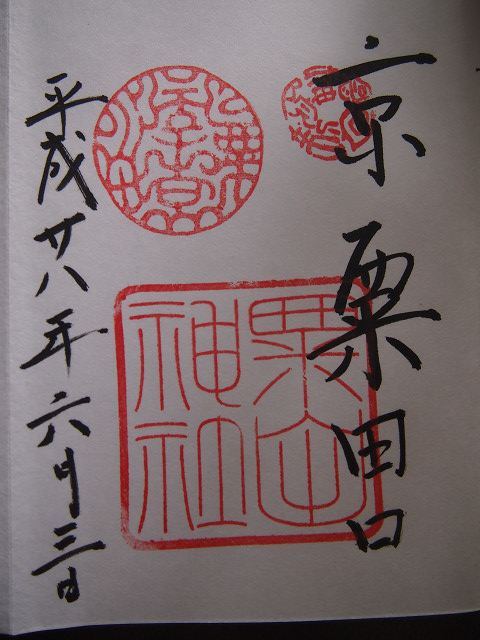 京 粟田口
粟田神社
平成廿八年六月三日